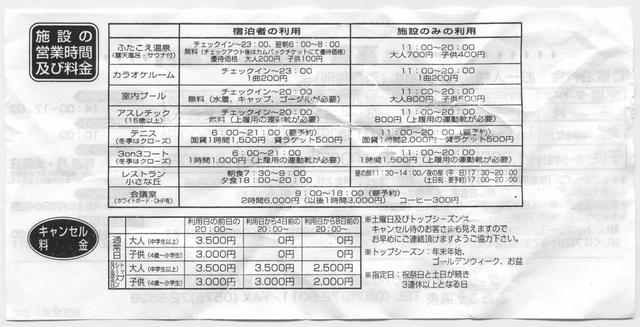 施設の
営業時間
及び料金
宿泊者の利用 施設のみの利用
ふたこえ温泉
(露天風呂・サウナ付)
チェックイン〜23:00、翌朝6:00〜8:00
無料(チェックアウト後はカムバックチケットにて優待価格)
優待価格 大人200円 子供100円
11:00〜20:00
大人700円 子供400円
カラオケルーム
チェックイン〜23:00
1曲200円
11:00〜20:00
1曲200円
室内プール
チェックイン〜20:00
無料(水着、キャップ、ゴーグルが必要)
11:00〜20:00
大人800円 子供500円
アスレチック
(15歳以上)
チェックイン〜20:00
無料(上履用の運動靴が必要)
11:00〜20:00
800円(上履用の運動靴が必要)
テニス
(冬季はクローズ)
6:00〜21:00(要予約)
面貸1時間1,500円 貸ラケット500円
11:00〜20:00(要予約)
面貸1時間2,000円 貸ラケット500円
3on3コート
(冬季はクローズ)
6:00〜21:00
1時間1,000円(上履用の運動靴が必要)
11:00〜20:00
1時間1,500円(上履用の運動靴が必要)
レストラン
小さな丘
朝食7:30〜9:00
夕食18:00〜20:00
昼の部11:30〜14:00/夜の部(平 日)17:30〜20:00
(土日祝:要予約)17:30〜20:00
会議室
(ホワイトボード・OHP有)
9:00〜18:00(要予約)
2時間6,000円(以後1時間3,000円) コーヒー300円
キャンセル
料金
利用日の前日の
20:00〜
利用日から4日前の
20:00〜
利用日から8日前の
20:00〜
通常日
大人(中学生以上) 3,500円 0円 0円
子供(4歳〜小学生) 3,000円 0円 0円
大人(中学生以上) 3,500円 3,500円 2,500円
子供(4歳〜小学生) 3,000円 3,000円 2,000円
※土曜日及びトップシーズンは
キャンセル待のお客さまも見えますので
お早めにご連絡頂けますようご協力下さい。
※トップシーズン:年末年始、
ゴールデンウィーク、お盆
※指定日:祝祭日と土日が続き
3連休以上となる日